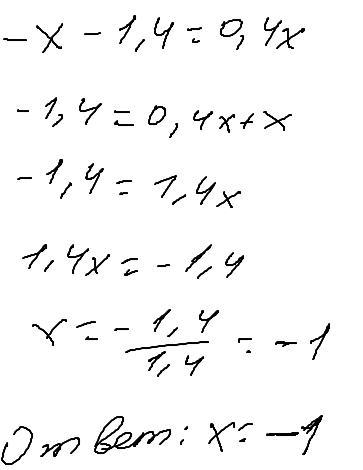 -x - 1,4 = 0,4x
-1,4 = 0,4x+x
-1,4 = 1,4x
1,4x = -1,4
x = - 1,4/1,4 = -1
Ответ: x = -1